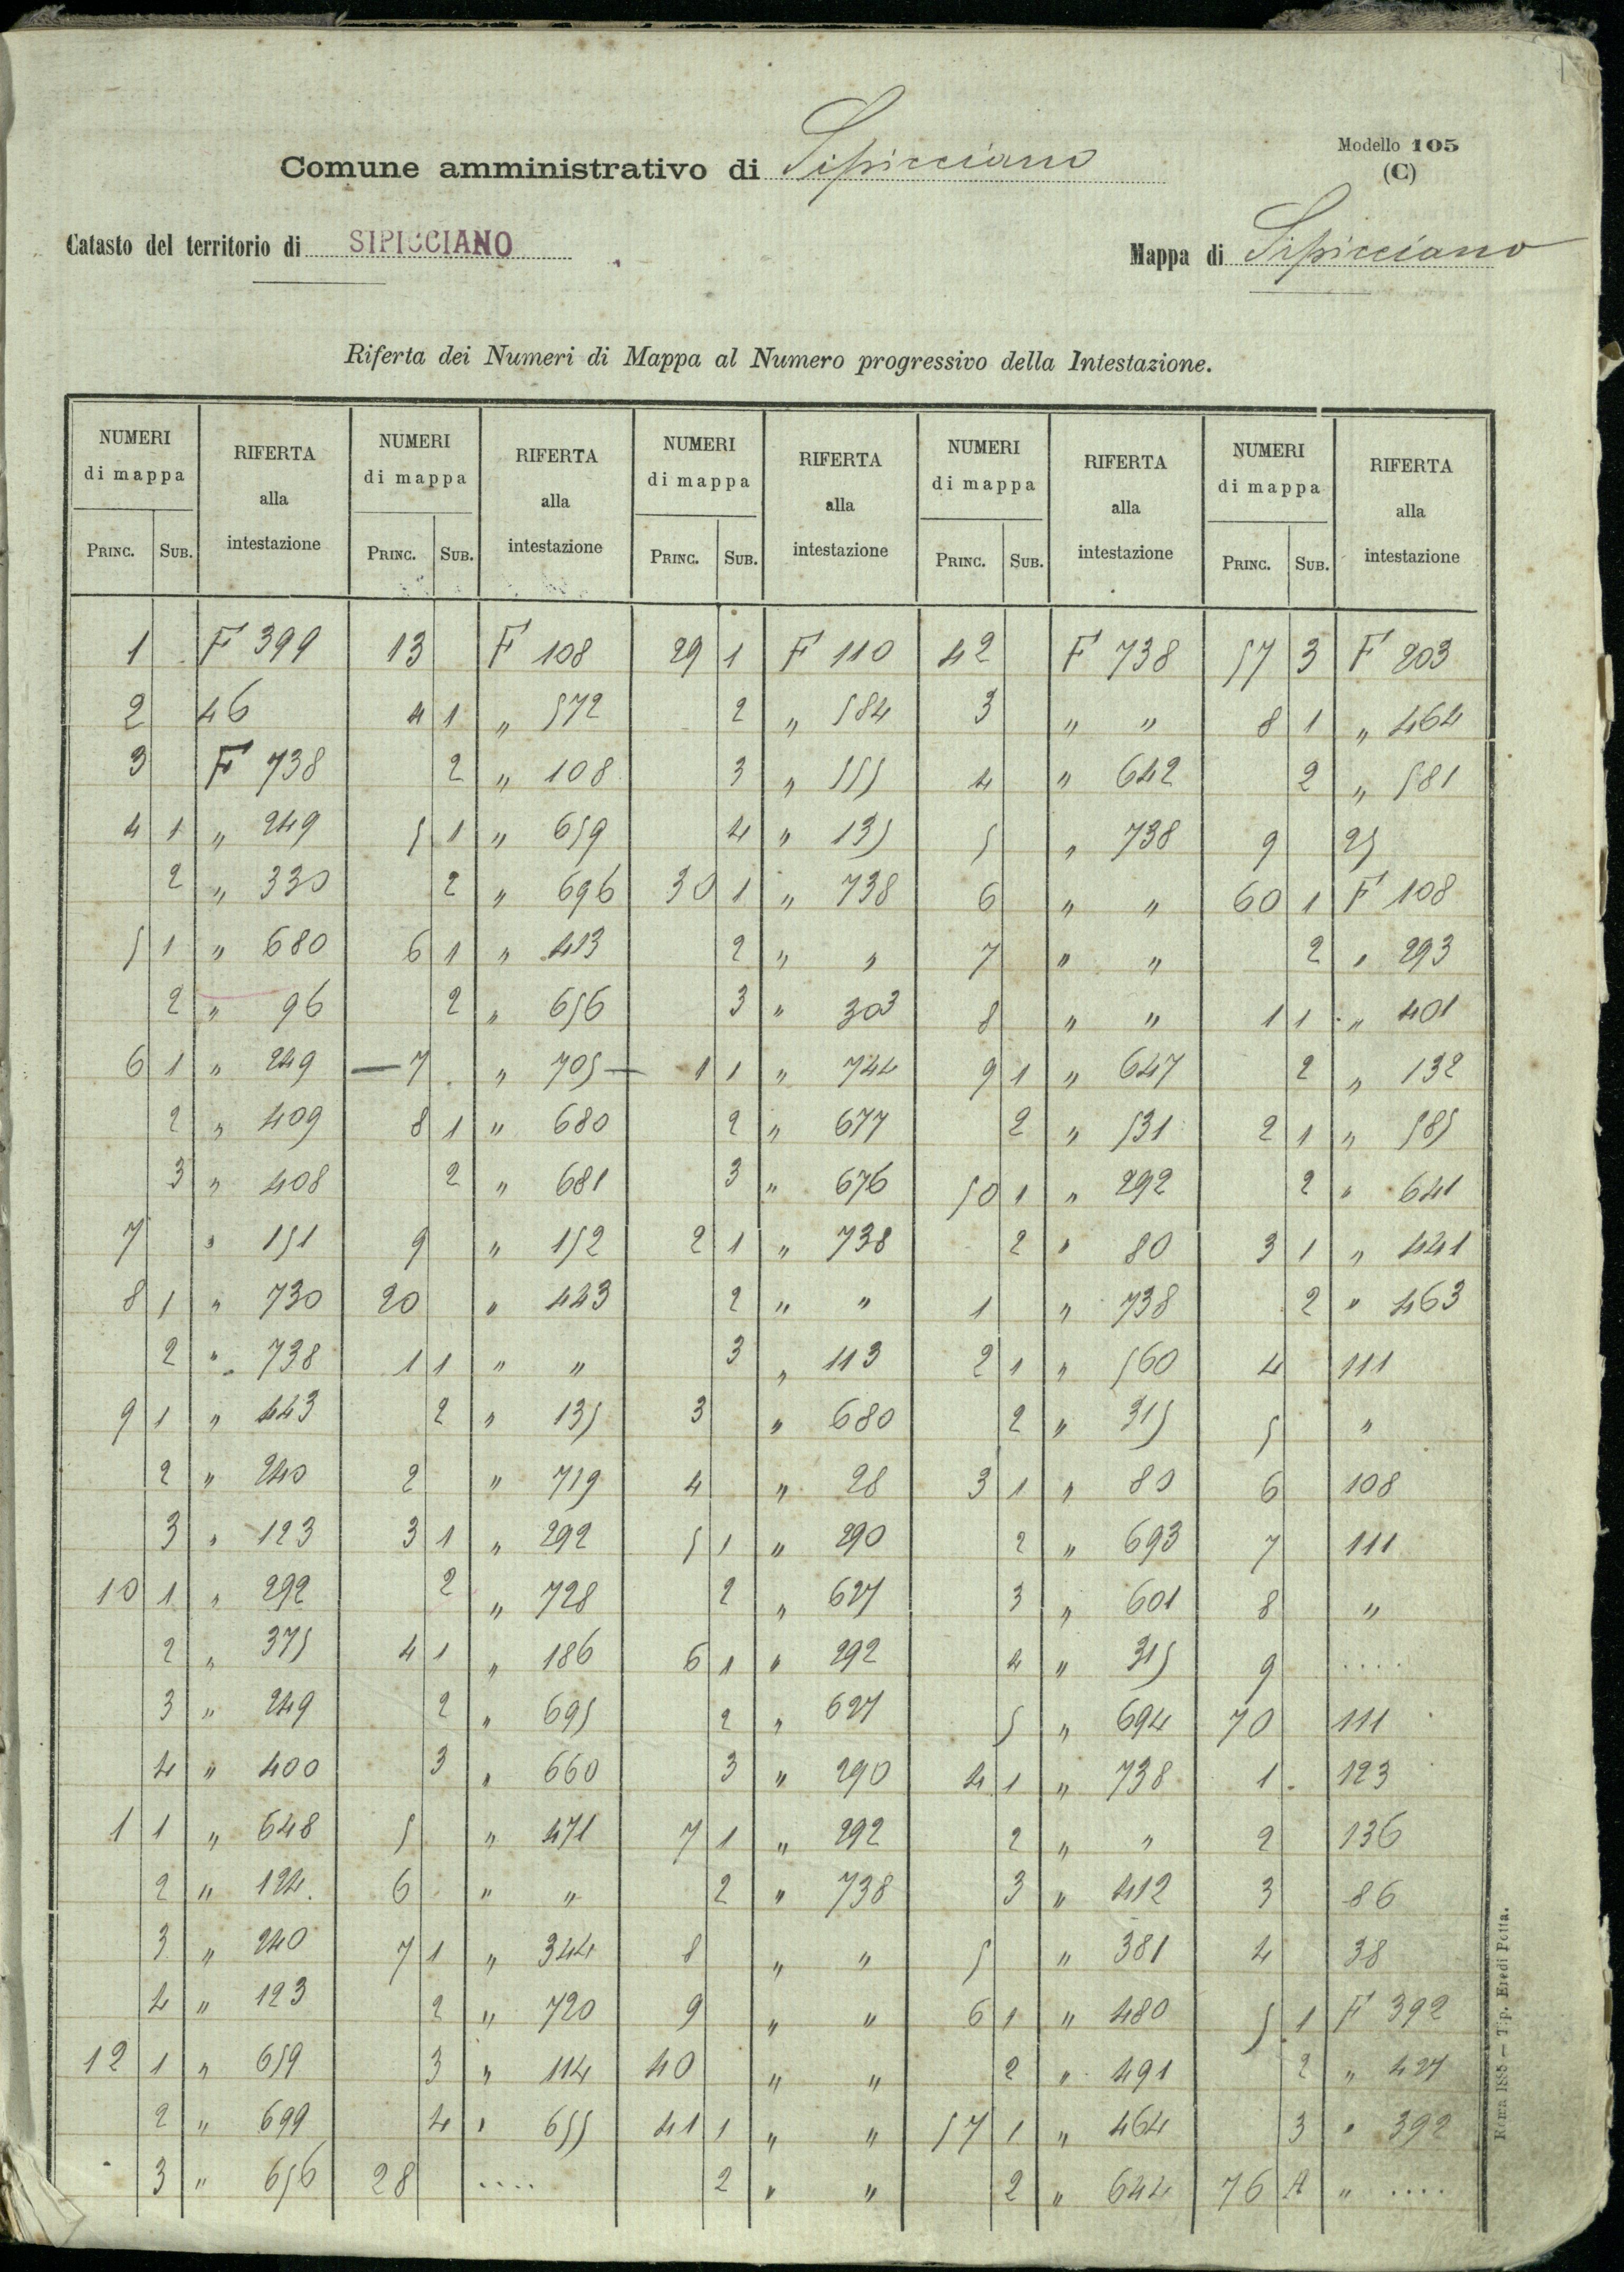 Modello 105
(C)
Comune amministrativo di Sipicciano
Catasto del territorio di SIPICCIANO
Mappa di Sipicciano
Riferta dei Numeri di Mappa al Numero progressivo della Intestazione.
NUMERI di mappa RIFERTA alla intestazione NUMERI di mappa RIFERTA alla intestazione NUMERI di mappa RIFERTA alla intestazione NUMERI di mappa RIFERTA alla intestazione NUMERI di mappa RIFERTA alla intestazione
PRINC. SUB. PRINC. SUB. PRINC. SUB. PRINC. SUB. PRINC. SUB.
1 F 399 13 F 108 29 1 F 110 42 F 738 57 3 F 203
2 46 4 1 " 572 2 " 584 3 " " 8 1 " 464
3 F 738 2 " 108 3 " 555 4 " 642 2 " 581
4 1 " 249 5 1 " 659 4 " 135 5 " 738 9 25
2 " 330 2 " 696 30 1 " 738 6 " " 60 1 F 108
5 1 " 680 6 1 " 413 2 " " 7 " " 2 " 293
2 " 96 2 " 656 3 " 303 8 " " 1 1 " 401
6 1 " 249 — 7 " 705 — 1 1 " 744 9 1 " 647 2 " 132
2 " 409 8 1 " 680 2 " 677 2 " 531 2 1 " 585
3 " 408 2 " 681 3 " 676 50 1 " 292 2 " 641
7 " 151 9 " 152 2 1 " 738 2 " 80 3 1 " 441
8 1 " 730 20 " 443 2 " " 1 " 738 2 " 463
2 " 738 1 1 " " 3 " 113 2 1 " 560 4 111
9 1 " 443 2 " 135 3 " 680 2 " 315 5 "
2 " 240 2 " 719 4 " 28 3 1 " 80 6 108
3 " 123 3 1 " 292 5 1 " 290 2 " 693 7 111
10 1 " 292 2 " 728 2 " 627 3 " 601 8 "
2 " 375 4 1 " 186 6 1 " 292 4 " 315 9 ....
3 " 249 2 " 695 2 " 627 5 " 694 70 111
4 " 400 3 " 660 3 " 290 4 1 " 738 1 123
1 1 " 648 5 " 471 7 1 " 292 2 " " 2 136
2 " 124 6 " " 2 " 738 3 " 412 3 86
3 " 240 7 1 " 344 8 " " 5 " 381 4 38
4 " 123 2 " 720 9 " " 6 1 " 480 5 1 F 392
12 1 " 659 3 " 114 40 " " 2 " 491 2 " 427
2 " 699 4 " 655 41 1 " " 57 1 " 464 3 " 392
3 " 656 28 .... 2 " " 2 " 644 76 A " ....
Roma 1885 — Tip. Eredi Botta.